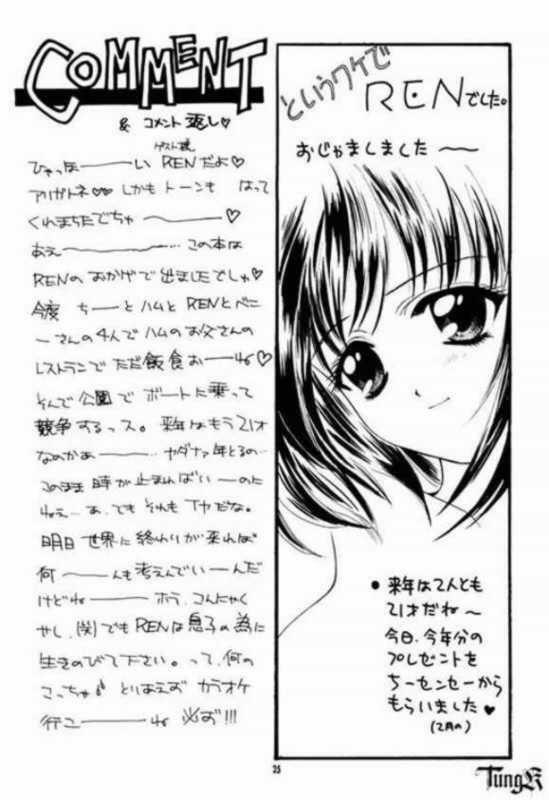 COMMENT
& コメント返し♡
ゲスト様
ひゃっほ――い RENだよ♡
アリガトネ♡♡ しかも トーンも はって
くれまちたでちゃ ――♡
あぇ――… この本は
RENの おかげで出ましたでしゅ♡
今度 ちーとハムと RENとべに
ーさんの4人でハムのお父さんの
レストランで ただ飯食おーね♡
そんで公園で ボートに乗って
競争するっス。来年はもう21才
なのかぁ――… ヤダナァ年とるの…
このまま 時が止まればいーのに
ねぇ… あ、でも それも イヤだな。
明日 世界に終わりが来れば
何――んも考えんでいーんだ
けどね―― ホラ、コンにゃく
やし、(関)でもRENは息子の為に
生きのびて下さい。って、何の
こっちゃ♪ とりあえず カラオケ
行こ――ね 必ず!!!
というワケで
RENでした。
おじゃましました ～
• 来年は2人とも
21才だね～
今日、今年分の
プレゼントを
ちーセンセーから
もらいました♥
(2月の)
25
TungK